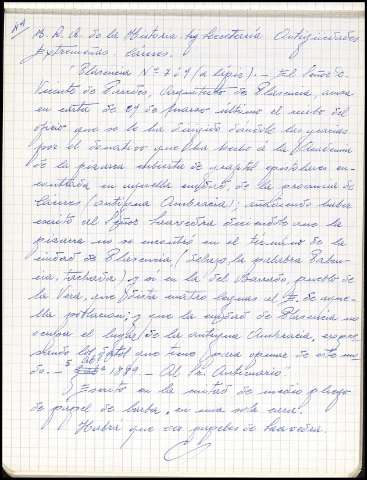 R. A. de la Historia Secretaría Antigüedades
Extremeñas. Cáceres.
Plasencia Nº 7 (a lápiz). — El Señor D.
Vicente de Paredes, Arquitecto de Plasencia, avisa
en carta de 29 de marzo último el recibo del
oficio que se le ha dirigido dándole las gracias
por el donativo que ha hecho á la Academia
de la pizarra cubierta de grafitos en
contrada en aquella de la provincia de
Cáceres (antigua Ambracia); añadiendo haber
escrito al Señor Saavedra diciéndole que la
pizarra no se encontró en el término de la
ciudad de Plasencia (debajo la palabra
tachada) y sí en la del Barrado, pueblo de
la Vera, que dista cuatro leguas al E. de aque-
lla población; y que la ciudad de Plasencia no
ocupa el lugar de la antigua Ambracia, expre-
sando los datos que tiene para opinar de este mo-
do. — 5 1899 — Al Sr. Anticuario.
Escrito en la mitad de medio pliego
de papel de barba, en una sola cara.
Habrá que ver papeles de Saavedra.